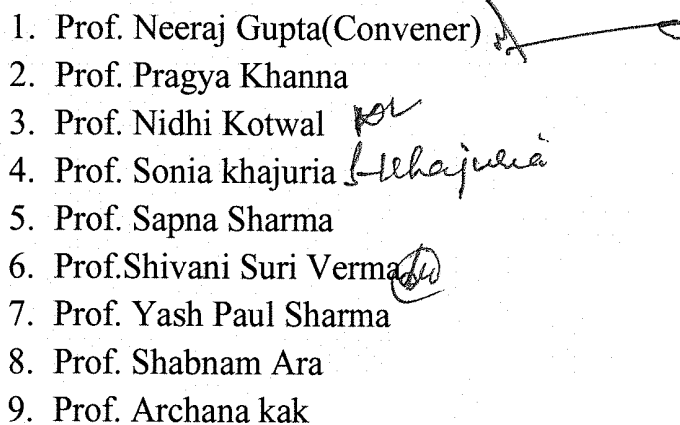 1. Prof. Neeraj Gupta(Convener)
2. Prof. Pragya Khanna
3. Prof. Nidhi Kotwal
4. Prof. Sonia khajuria S-Khajuria
5. Prof. Sapna Sharma
6. Prof.Shivani Suri Verma
7. Prof. Yash Paul Sharma
8. Prof. Shabnam Ara
9. Prof. Archana kak